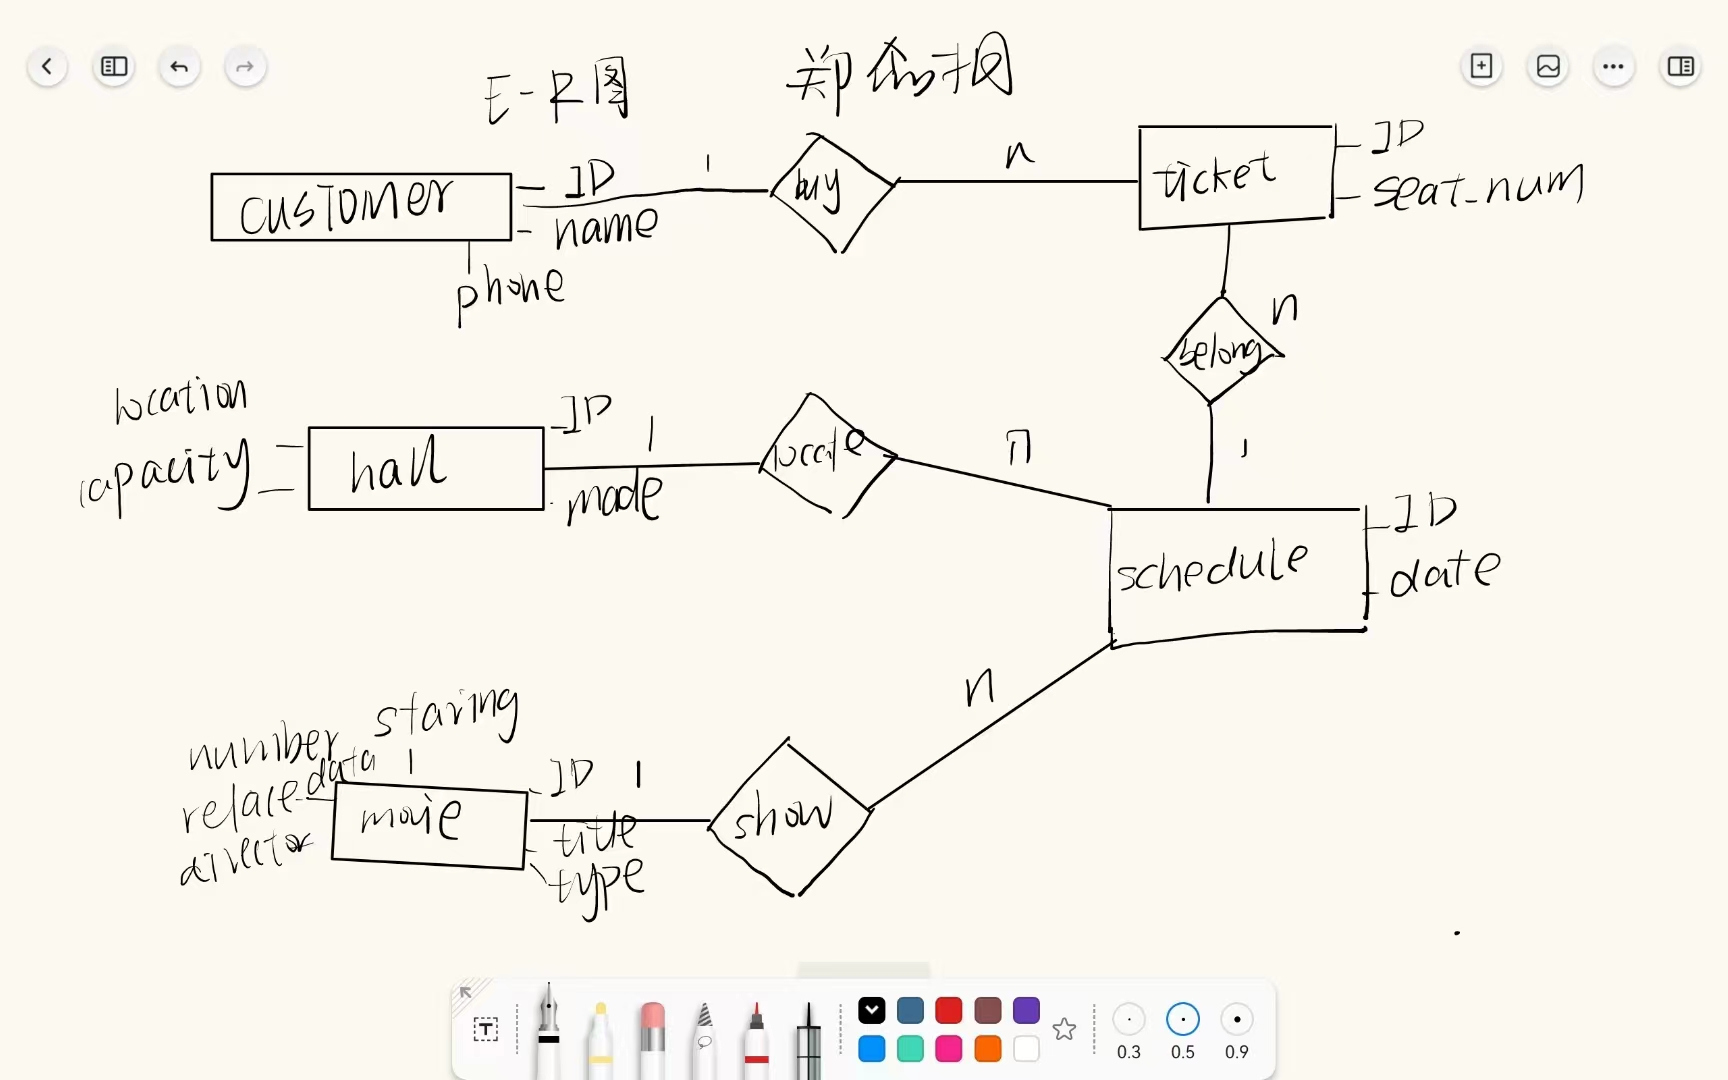 E-R图
customer
ID
name
phone
1
buy
n
ticket
ID
seat_num
n
belong
1
location
capacity
hall
ID
made
1
locate
n
schedule
ID
date
number
staring
relace data
director
movie
ID
title
type
1
show
n
0.3
0.5
0.9